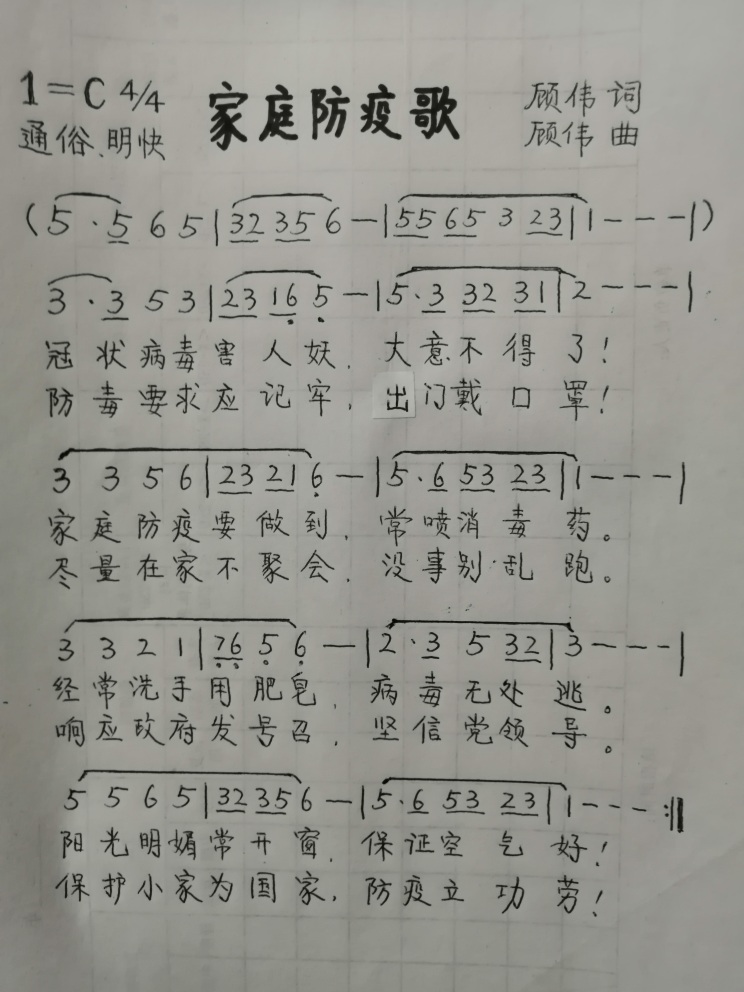 1=C 4/4 家庭防疫歌 顾伟 词
通俗、明快 顾伟 曲
(5·5 6 5|32 35 6—|55 65 3 23|1---|)
3·3 5 3|23 16 5—|5·3 32 31|2---|
冠状病毒害人妖，大意不得了！
防毒要求应记牢，出门戴口罩！
3 3 5 6|23 21 6—|5·6 53 23|1---|
家庭防疫要做到，常喷消毒药。
尽量在家不聚会，没事别乱跑。
3 3 2 1|76 5 6—|2·3 5 32|3---|
经常洗手用肥皂，病毒无处逃。
响应政府发号召，坚信党领导。
5 5 6 5|32 35 6—|5·6 53 23|1---:||
阳光明媚常开窗，保证空气好！
保护小家为国家，防疫立功劳！